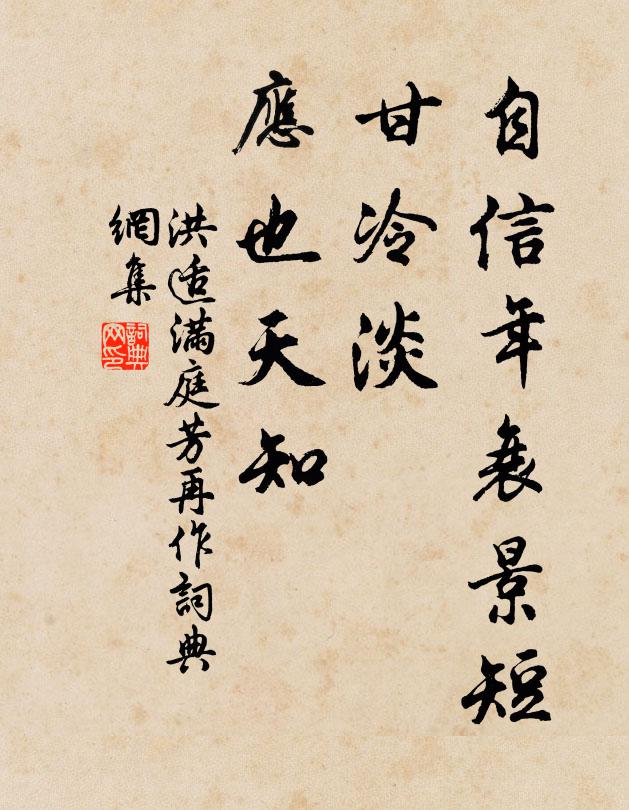 自信年衰景短
甘冷淡
應也天知
洪适滿庭芳再作詞典
網集
詞典網印